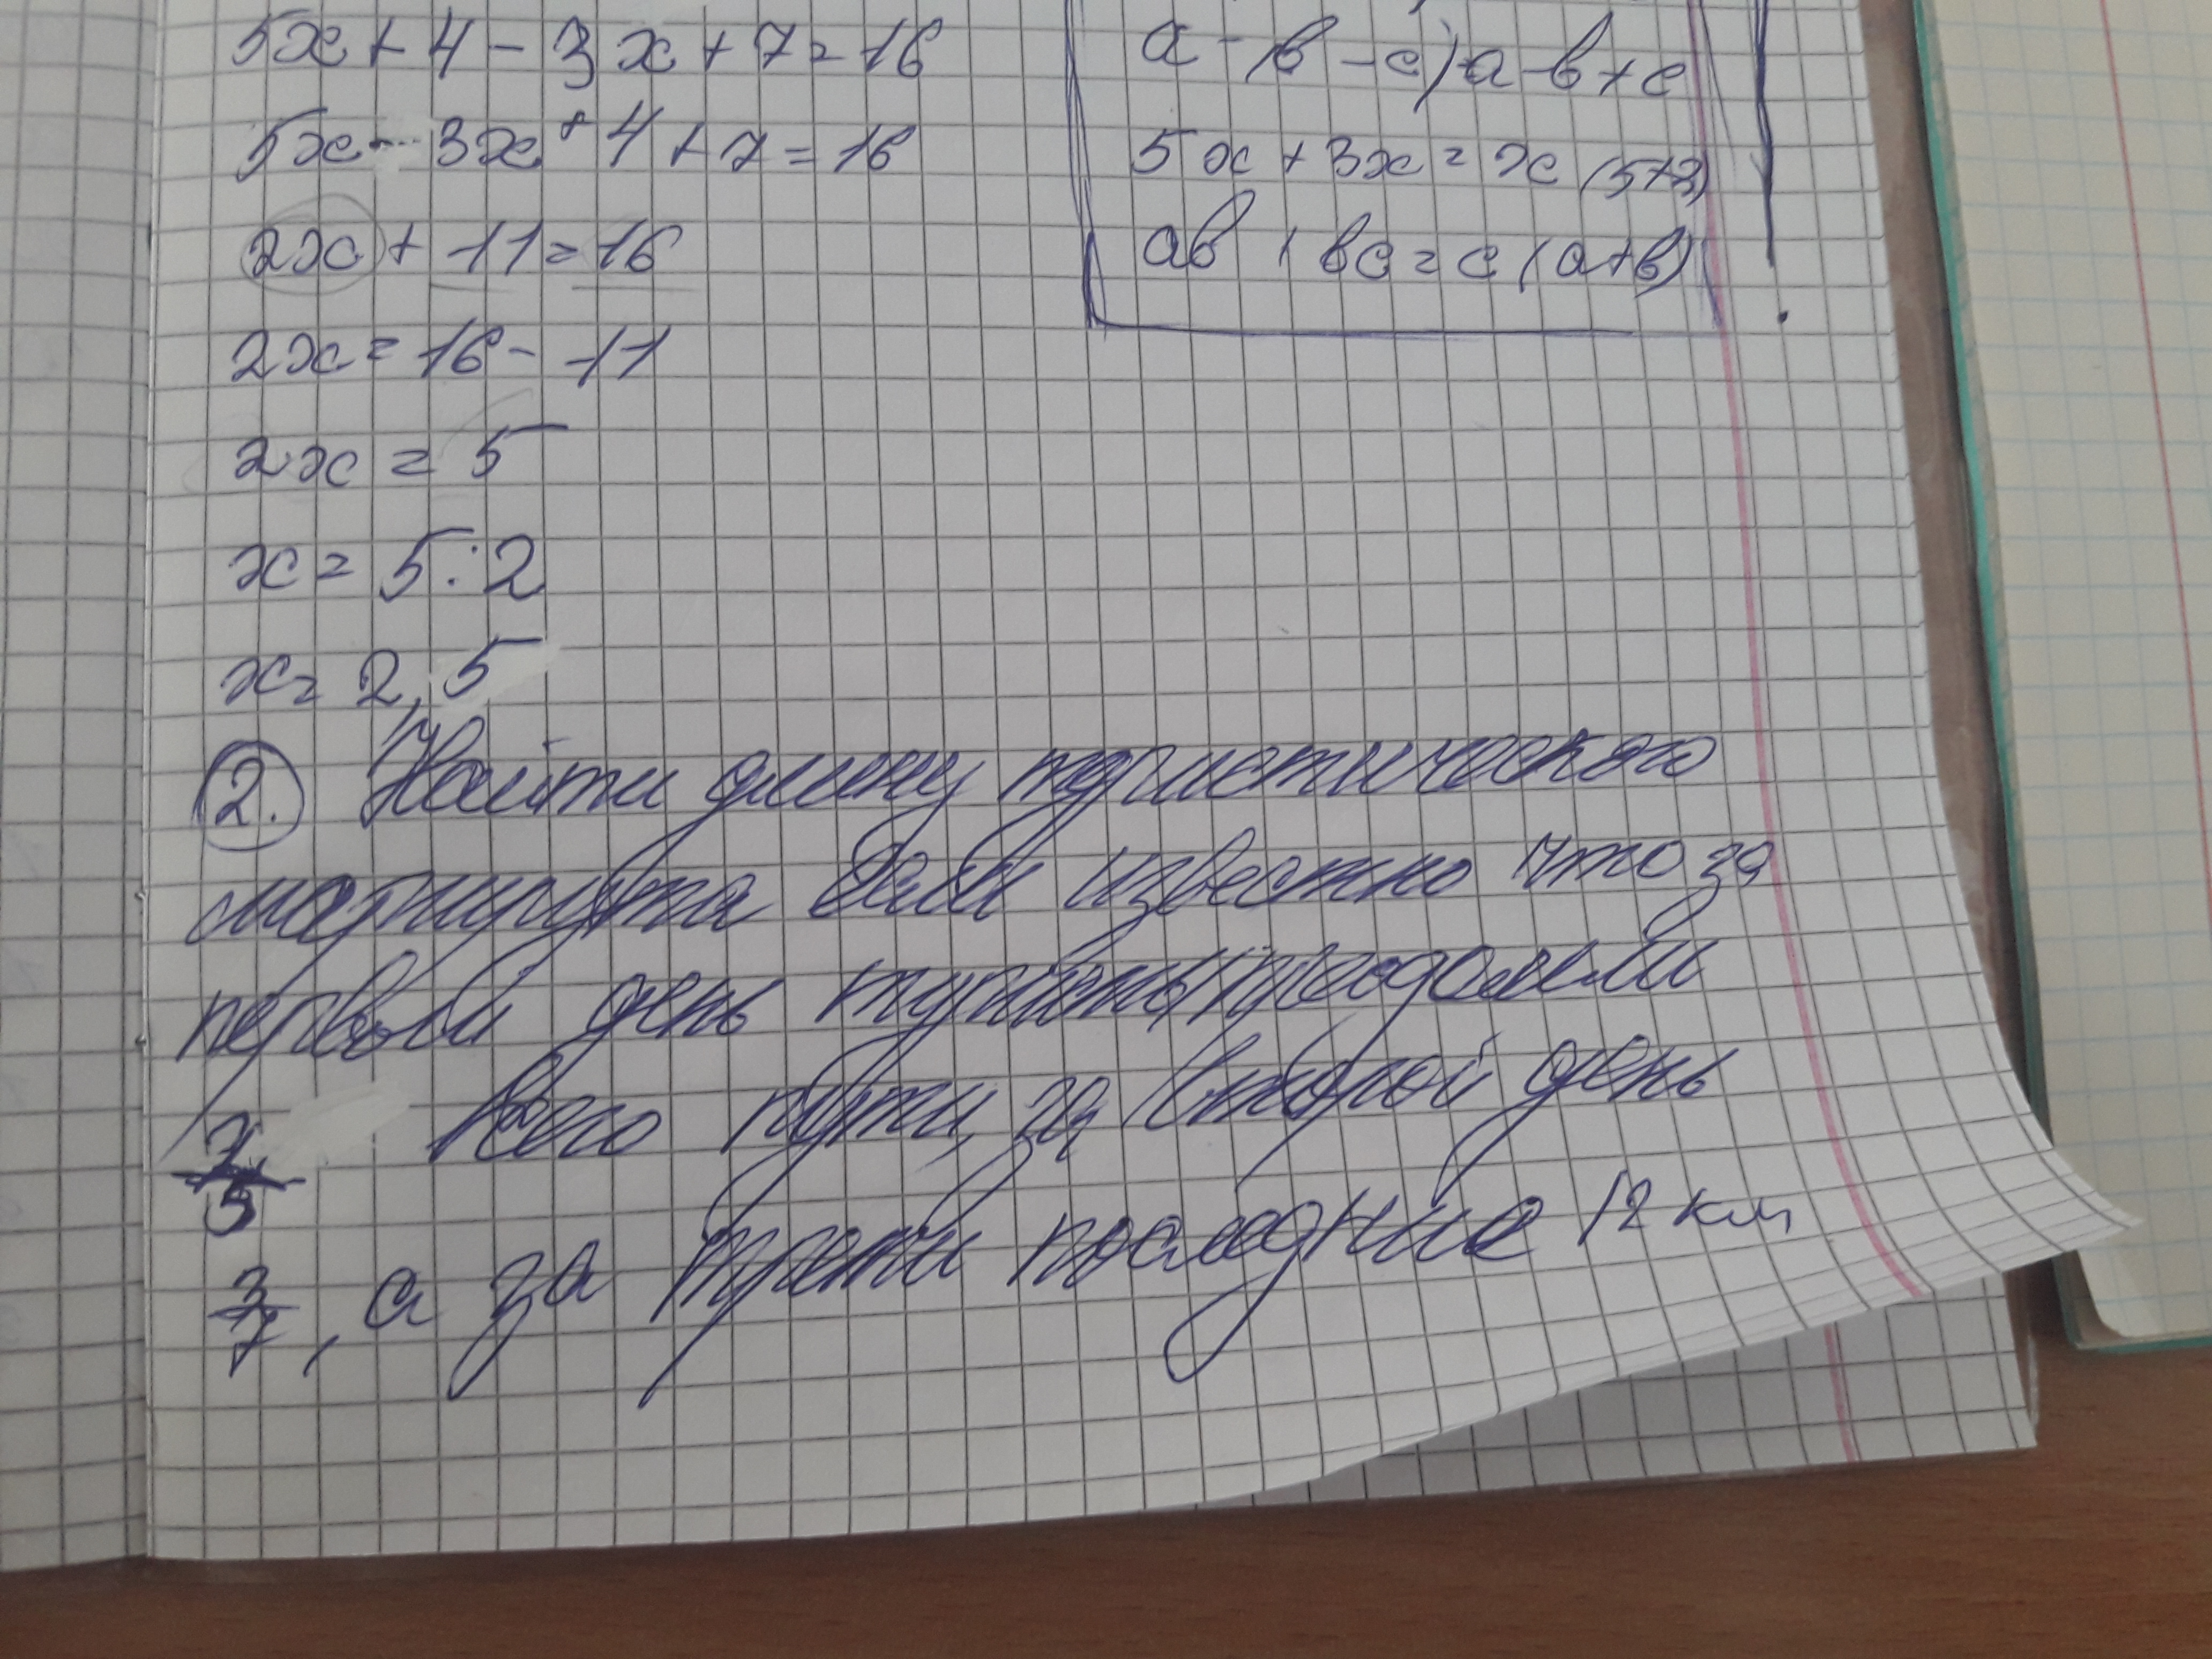 5x + 4 - 3x + 7 = 16
5x - 3x + 4 + 7 = 16
2x + 11 = 16
2x = 16 - 11
2x = 5
x = 5 : 2
x = 2,5
a - (в - c) = a - в + c
5x + 3x = x (5+3)
aв + вc = c (a+в)
2. Найти длину туристического
маршрута если известно что за
первый день туристы преодолели
2/5 всего пути, за второй день
3/7, а за третий последние 12 км